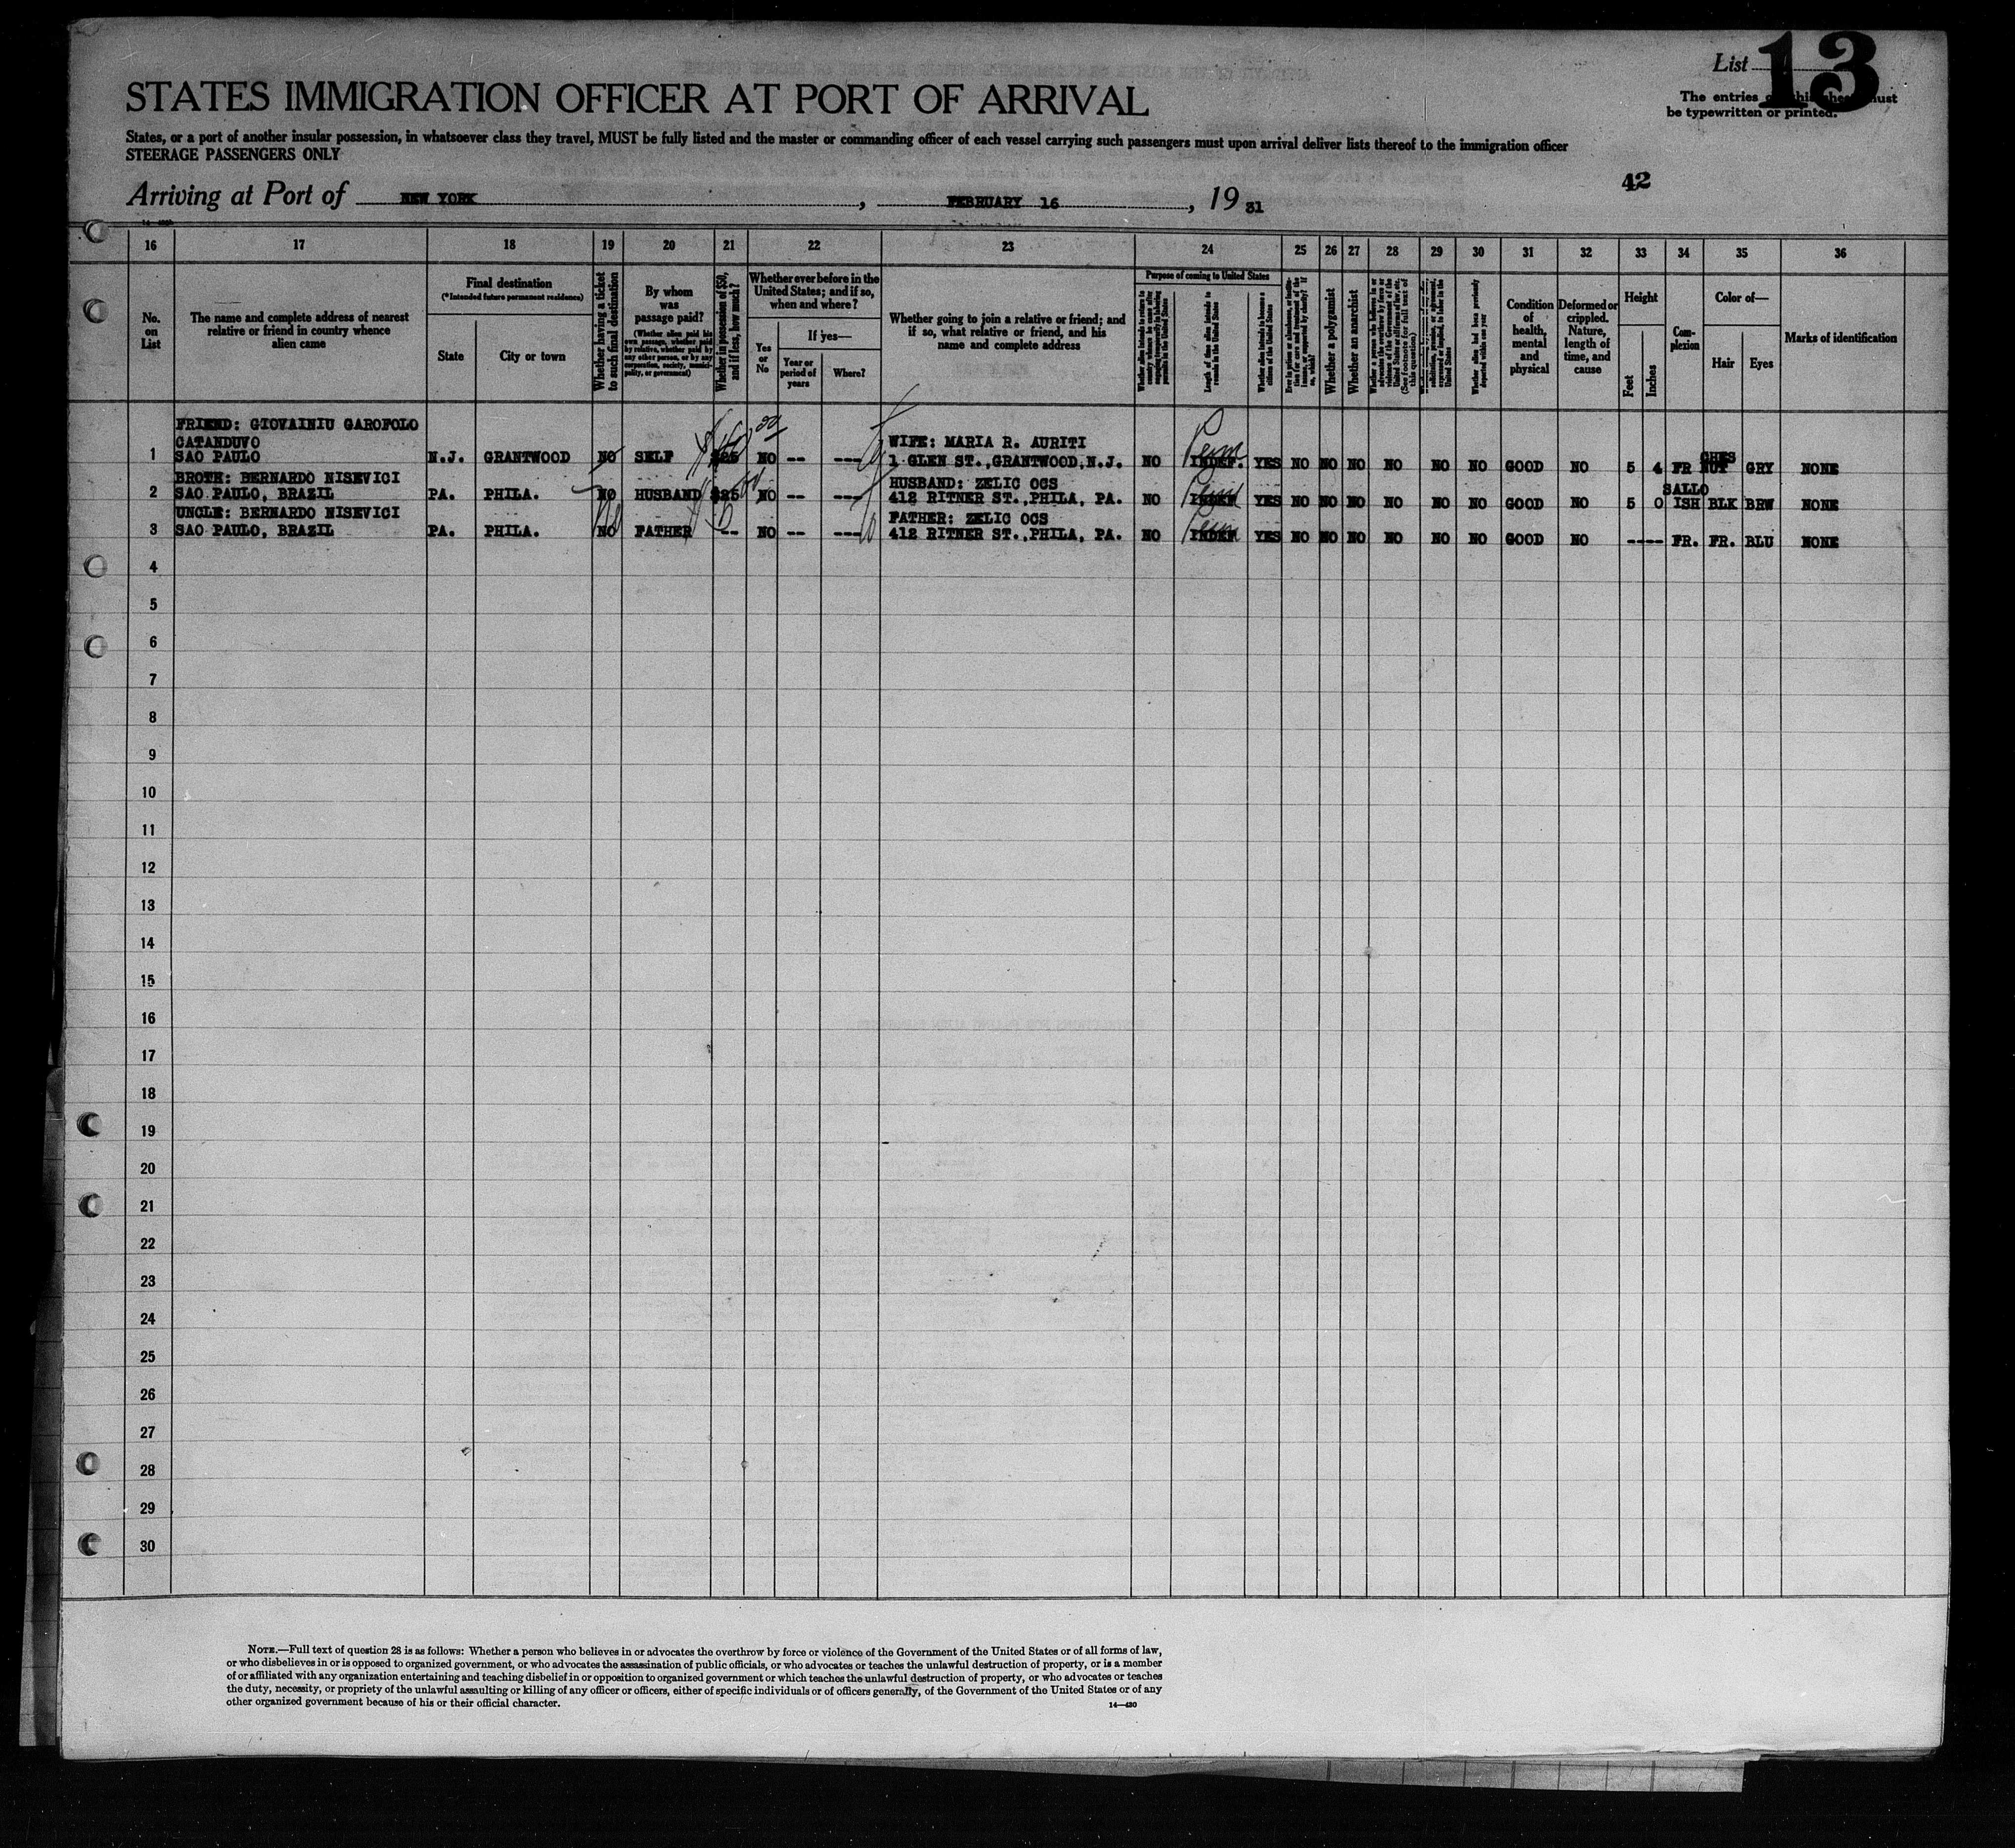 List 13
STATES IMMIGRATION OFFICER AT PORT OF ARRIVAL
The entries must
be typewritten or printed.
States, or a port of another insular possession, in whatsoever class they travel, MUST be fully listed and the master or commanding officer of each vessel carrying such passengers must upon arrival deliver lists thereof to the immigration officer
STEERAGE PASSENGERS ONLY
42
Arriving at Port of NEW YORK, FEBRUARY 16, 1931
16 17 18 19 20 21 22 23 24 25 26 27 28 29 30 31 32 33 34 35 36
No. on List
The name and complete address of nearest
relative or friend in country whence
alien came
Final destination
(*Intended future permanent residence)
State
City or town
Whether having a ticket
to such final destination
By whom
was
passage paid?
(Whether alien paid his
own passage, whether paid
by relative, whether paid by
any other person, or by any
corporation, society, munici-
pality, or government)
Whether in possession of $50,
and if less, how much?
Whether ever before in the
United States; and if so,
when and where?
Yes
or
No
If yes—
Year or
period of
years
Where?
Whether going to join a relative or friend; and
if so, what relative or friend, and his
name and complete address
Purpose of coming to United States
Length of time alien intends to
remain in the United States
Whether alien intends to become a
citizen of the United States
Whether a polygamist
Whether an anarchist
Whether alien had been previously
deported within one year
Condition
of
health,
mental
and
physical
Deformed or
crippled.
Nature,
length of
time, and
cause
Height
Feet
Inches
Com-
plexion
Color of—
Hair
Eyes
Marks of identification
FRIEND: GIOVAINIU GAROFOLO
CATANDUVO WIFE: MARIA R. AURITI Perm CHES
1 SAO PAULO N.J. GRANTWOOD NO SELF $25 NO -- --- 1 GLEN ST.,GRANTWOOD,N.J. NO INDEF. YES NO NO NO NO NO NO GOOD NO 5 4 FR NUT GRY NONE
BROTH: BERNARDO NISEVICI HUSBAND: ZELIC OCS Perm SALLO
2 SAO PAULO, BRAZIL PA. PHILA. NO HUSBAND $25 NO -- --- 412 RITNER ST.,PHILA, PA. NO INDEF YES NO NO NO NO NO NO GOOD NO 5 0 ISH BLK BRW NONE
UNCLE: BERNARDO NISEVICI FATHER: ZELIC OCS Perm
3 SAO PAULO, BRAZIL PA. PHILA. NO FATHER -- NO -- --- 412 RITNER ST.,PHILA, PA. NO INDEF YES NO NO NO NO NO NO GOOD NO ---- FR. FR. BLU NONE
4
5
6
7
8
9
10
11
12
13
14
15
16
17
18
19
20
21
22
23
24
25
26
27
28
29
30
NOTE.—Full text of question 28 is as follows: Whether a person who believes in or advocates the overthrow by force or violence of the Government of the United States or of all forms of law,
or who disbelieves in or is opposed to organized government, or who advocates the assassination of public officials, or who advocates or teaches the unlawful destruction of property, or is a member
of or affiliated with any organization entertaining and teaching disbelief in or opposition to organized government or which teaches the unlawful destruction of property, or who advocates or teaches
the duty, necessity, or propriety of the unlawful assaulting or killing of any officer or officers, either of specific individuals or of officers generally, of the Government of the United States or of any
other organized government because of his or their official character.
14—430